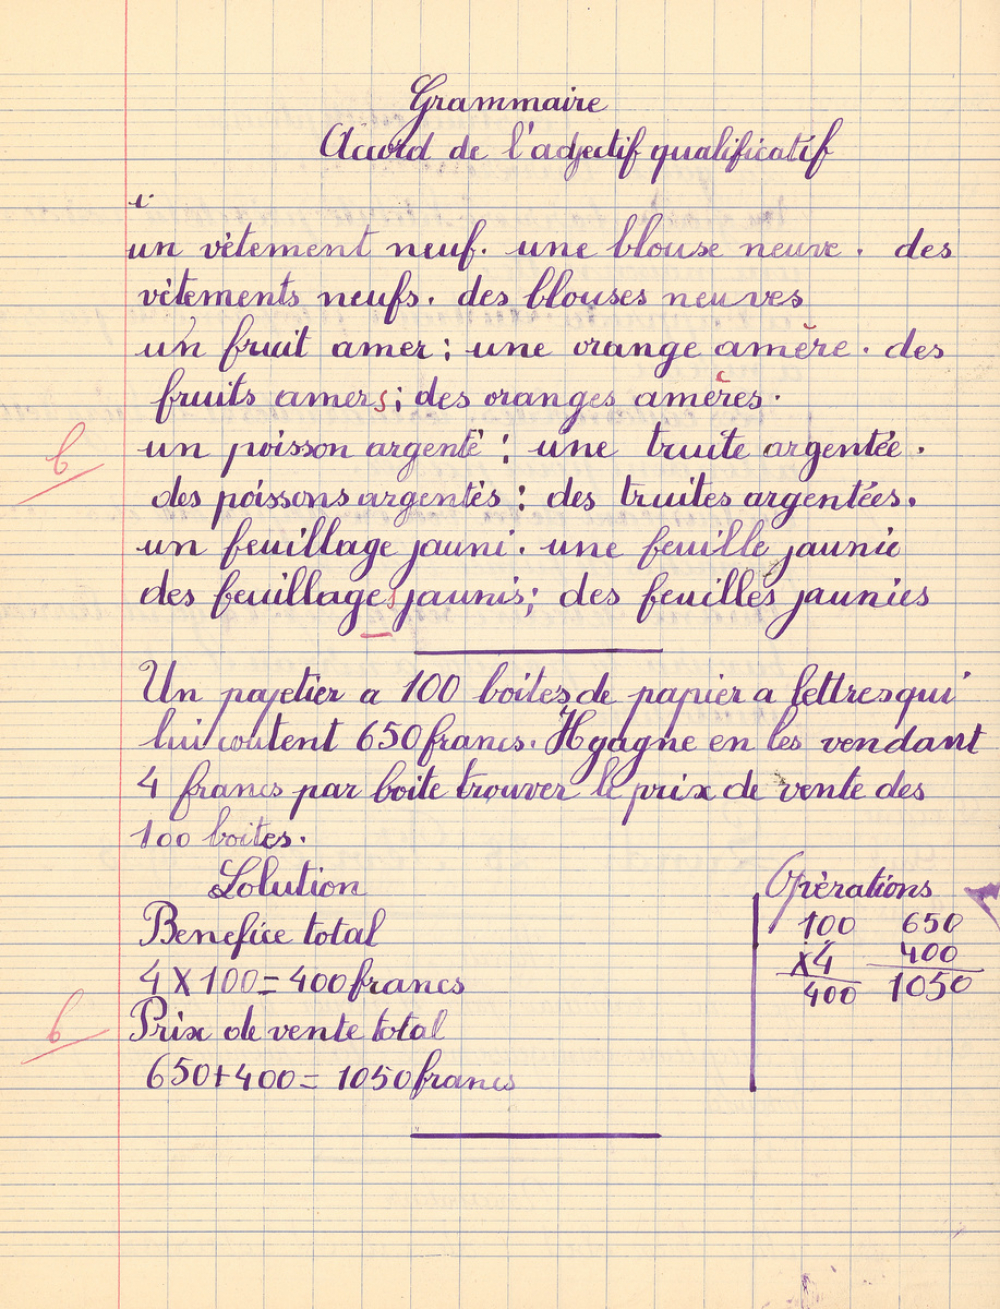 Grammaire
Accord de l'adjectif qualificatif
un vêtement neuf. une blouse neuve. des
vêtements neufs. des blouses neuves
un fruit amer ; une orange amère. des
fruits amers ; des oranges amères.
b
un poisson argenté ; une truite argentée.
des poissons argentés ; des truites argentées.
un feuillage jauni. une feuille jaunie
des feuillages jaunis ; des feuilles jaunies
Un papetier a 100 boites de papier a lettres qui
lui coutent 650 francs. Il gagne en les vendant
4 francs par boite trouver le prix de vente des
100 boites.
Solution
Opérations
Benefice total
100 650
4 X 100 = 400 francs
X4 400
400 1050
b
Prix de vente total
650 + 400 = 1050 francs